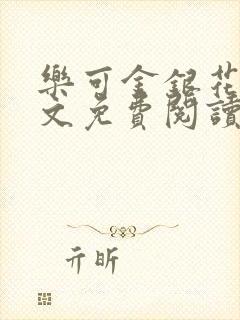 樂可金銀花
文免費閱讀
亓昕